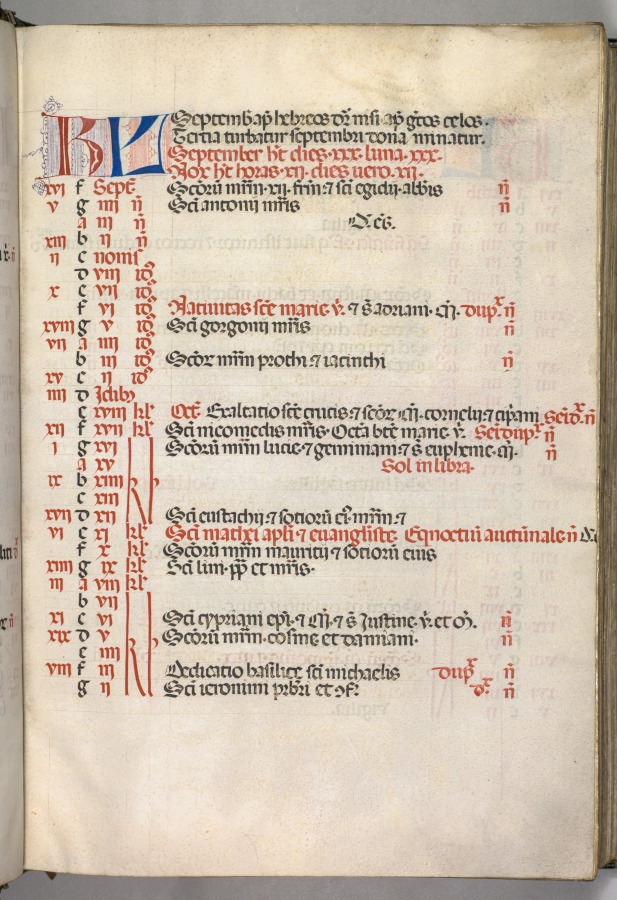 KL Septemb ap hebreos dr̄ nisi ap̄ gr̄os celos.
Tertia turbatur septembri dona minatur.
September h̄t dies .xxx. luna .xxx.
Nox h̄t horas .xii. dies uero .xii.
xvi f Sept̄. Sc̄orū mr̄m .xii. fr̄m ⁊ sc̄i egidii abb̄is n̄
v g iiii n̄ Sc̄i antonii mr̄is n̄
a iii n̄
xiii b ii n̄
ii c nonis
d viii id᷒
x e vii id᷒
f vi id᷒ Natiuitas sc̄e marie v̄. ⁊ s̄ adriani. m̄. dup̄x n̄
xviii g v id᷒ Sc̄i gorgonii mr̄is n̄
vii a iiii id᷒
b iii id᷒ Sc̄or mr̄m prothi ⁊ iacinchi n̄
xv c ii id᷒
iiii d Idib᷒
e xviii kl̄ Oct̄. Exaltatio sc̄e crucis ⁊ sc̄or m̄. cornelii ⁊ cip̄ani n̄
xii f xvii kl̄ Sc̄i nicomedis mr̄is. Octa bt̄e marie v̄. n̄
i g xvi Sc̄orū mr̄m lucie ⁊ geminiani ⁊ s̄ euphemie m̄. n̄
a xv Sol in libra.
ix b xiiii
c xiii kl̄
xvii d xii Sc̄i eustachii ⁊ sotiorū ei᷒ mr̄m ⁊
vi e xi kl̄ Sc̄i mathei apl̄i ⁊ euangl̄iste. Eqnoctiū auctūnale n̄
f x kl̄ Sc̄orū mr̄m mauritii ⁊ sotiorū eius
xiiii g ix kl̄ Sc̄i lini. pp̄ et mr̄is.
iii a viii kl̄
b vii
xi c vi Sc̄i cypriani ep̄i. ⁊ m̄. ⁊ s̄ Justine. v̄. et m̄. n̄
xix d v Sc̄orū mr̄m. cosme et damiani. n̄
e iiii kl̄
viii f iii Dedicatio basilice sc̄i michaelis dup̄x n̄
g ii Sc̄i ieronimi pr̄bri et ɔf᷒ d᷒x n̄